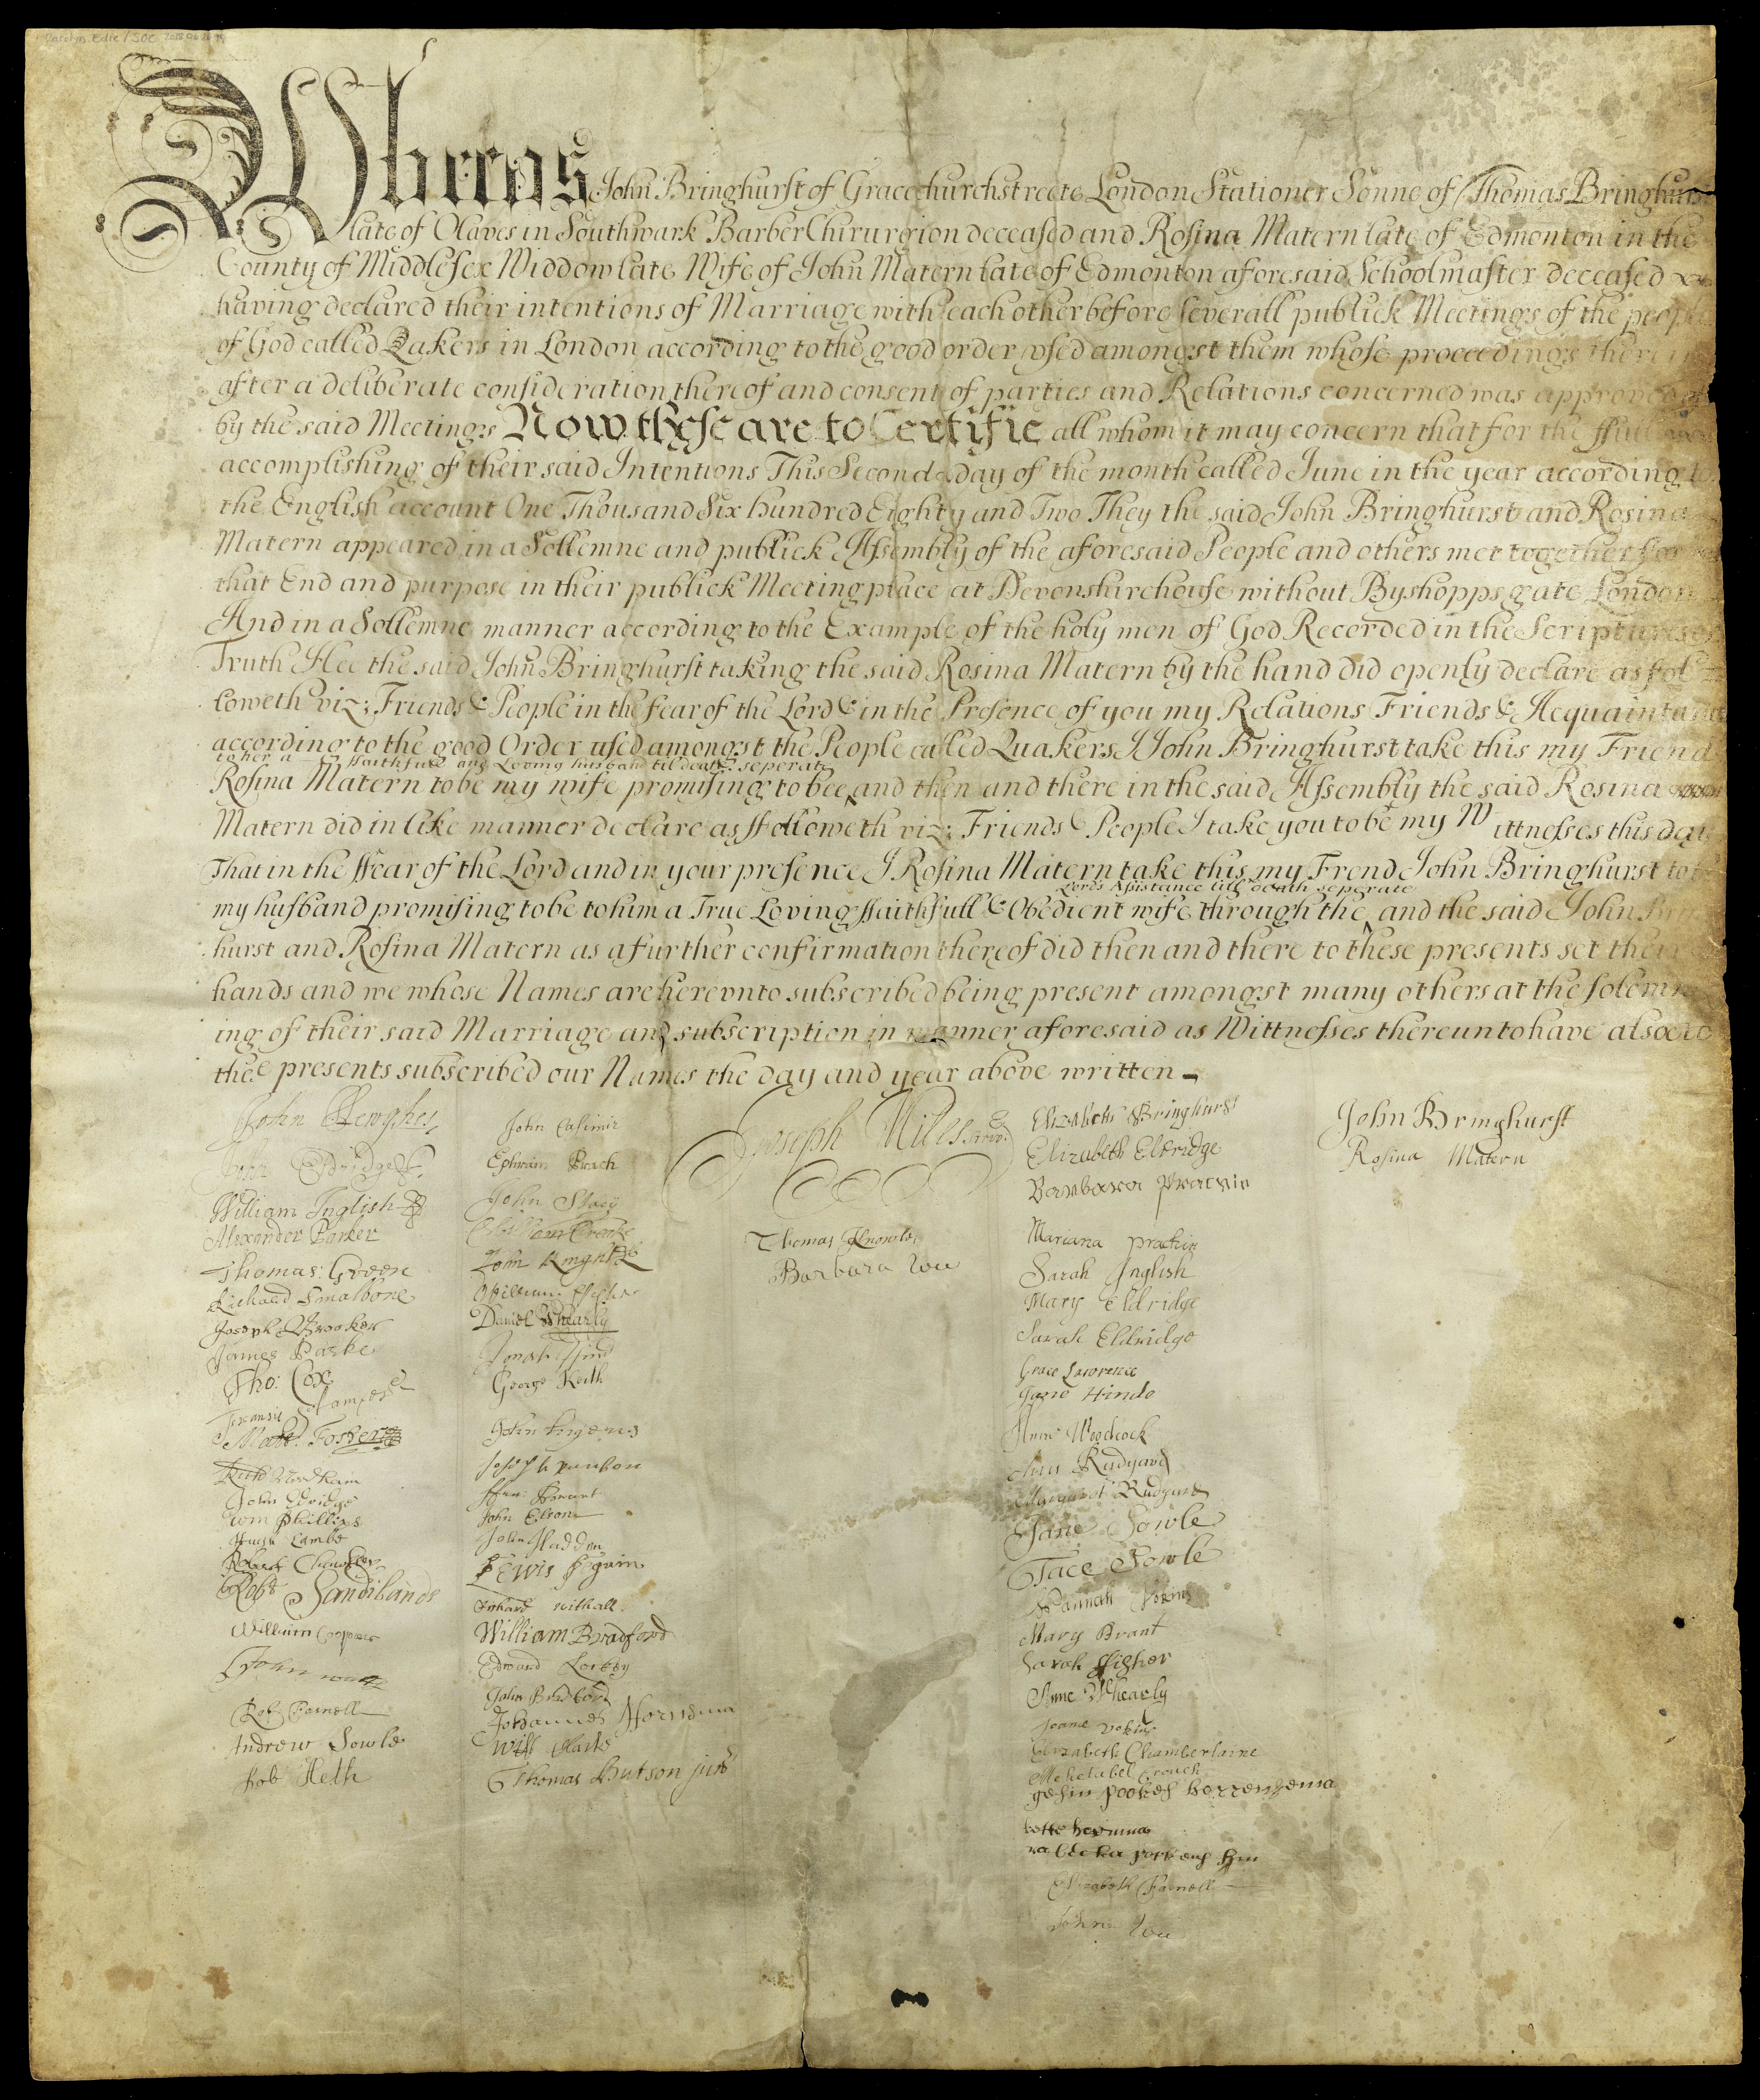 Whereas John Bringhurst of Gracechurchstreete London Stationer Sonne of Thomas Bringhurst
late of Olaves in Southwark Barber Chirurgion deceased and Rosina Matern late of Edmonton in the
County of Middlesex Widdow late Wife of John Matern late of Edmonton aforesaid Schoolmaster deceased
having declared their intentions of Marriage with each other before severall publick Meetings of the people
of God called Qakers in London according to the good order used amongst them whose proceedings therein
after a deliberate consideration thereof and consent of parties and Relations concerned was approved of
by the said Meetings Now these are to Certifie all whom it may concern that for the ffull
accomplishing of their said Intentions This Second day of the month called June in the year according to
the English account One Thousand Six hundred Eighty and Two They the said John Bringhurst and Rosina
Matern appeared in a Sollemne and publick Assembly of the aforesaid People and others met together for
that End and purpose in their publick Meeting place at Devonshirehouse without Byshopps gate London
And in a Sollemne manner according to the Example of the holy men of God Recorded in the Scriptures of
Truth Hee the said John Bringhurst taking the said Rosina Matern by the hand did openly declare as fol
loweth viz; Friends & People in the fear of the Lord & in the Presence of you my Relations Friends & Acquaintance
according to the good Order used amongst the People called Quakers I John Bringhurst take this my Friend
to her a faithfull and Loving husband til death seperate
Rosina Matern to be my wife promising to bee and then and there in the said Assembly the said Rosina
Matern did in like manner declare as ffolloweth viz; Friends & People I take you to be my Wittnesses this day
That in the ffear of the Lord and in your presence I Rosina Matern take this my Frend John Bringhurst to be
Lords Assistance till death seperate
my husband promising to be to him a True Loving ffaithfull & Obedient wife through the and the said John Bring
hurst and Rosina Matern as a further confirmation thereof did then and there to these presents set their
hands and we whose Names are herevnto subscribed being present amongst many others at the solemniz
ing of their said Marriage and subscription in manner aforesaid as Wittnesses thereunto have also to
these presents subscribed our Names the day and year above written
John Hewghes
John Eldridge
William Inglish
Alexander Parker
Thomas Green
Richard Smalbone
Joseph Brooker
James Parke
Tho: Cox
Francis Stamper
Matt: Foster
Ruth
John Eldridge
Wm Phillips
Hugh Lambe
Robert Chandler
Robt Sandilands
William Cooper
John watts
Rob Farnell
Andrew Sowle
Rob Heth
John Casimir
Ephraim Prach
John Stacy
William Crooke
John Knight
William ffisher
Daniel Whearly
Jonah
George Keith
John
Joseph
John Elson
John Hadden
Lewis
Richard withall
William Bradford
Edward
John Bradford
Johannes
Will Clarke
Thomas Hutson junr
Joseph Miles
Thomas Knowles
Barbara
Elizabeth Bringhurst
Elizabeth Eldridge
Barbara Prachin
Mariana prachin
Sarah Inglish
Mary Eldridge
Sarah Eldridge
Grace Lawrence
Jane Hinde
Anne Woodcock
Ann Rudyard
Margaret Rudyard
Jane Sowle
Tace Sowle
Hannah Vokins
Mary Brant
Sarah ffisher
Anne Whearly
Joane vokins
Elizabeth Chamberlaine
Mehetabel Crouch
gesin
Elizabeth Farnell
John
John Bringhurst
Rosina Matern